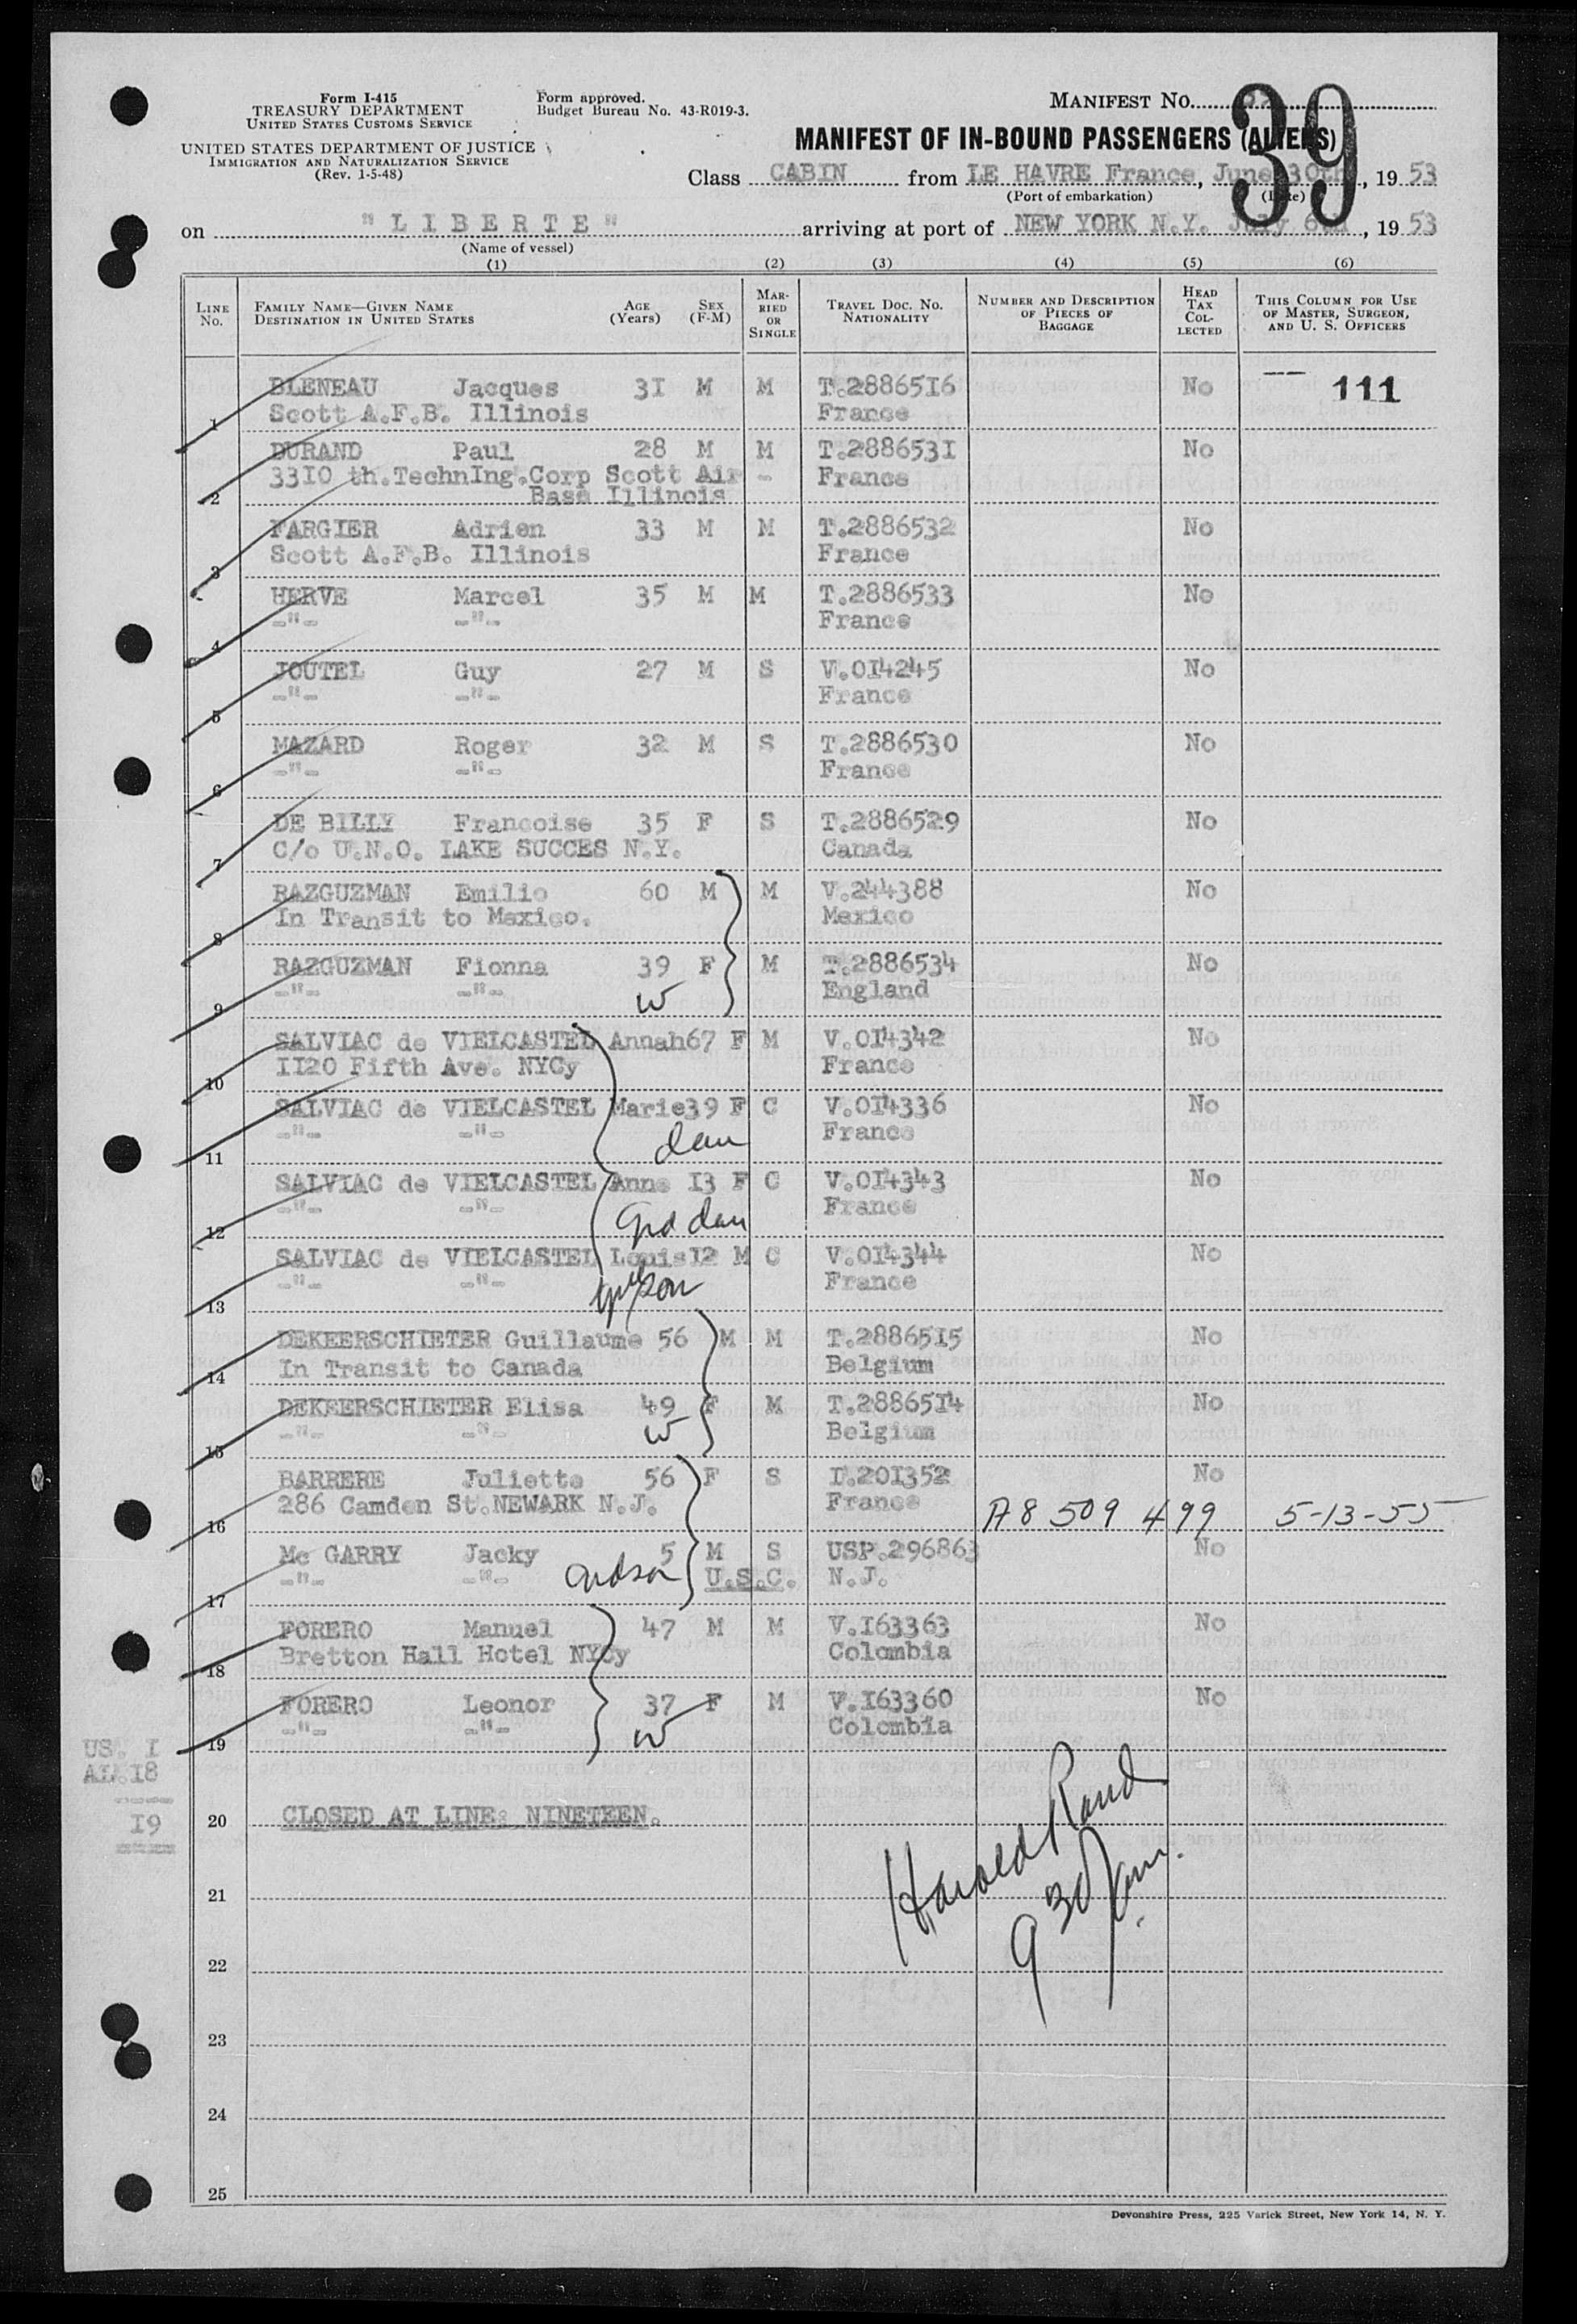 Form I-415
TREASURY DEPARTMENT
UNITED STATES CUSTOMS SERVICE
UNITED STATES DEPARTMENT OF JUSTICE
IMMIGRATION AND NATURALIZATION SERVICE
(Rev. 1-5-48)
Form approved.
Budget Bureau No. 43-R019-3.
MANIFEST NO.
39
MANIFEST OF IN-BOUND PASSENGERS (ALIENS)
Class CABIN from LE HAVRE France, June 30th, 1953
(Port of embarkation) (Date)
on "LIBERTE" arriving at port of NEW YORK N.Y. July 6th, 1953
(Name of vessel)
(1) (2) (3) (4) (5) (6)
LINE No.
FAMILY NAME—GIVEN NAME
DESTINATION IN UNITED STATES
AGE (Years)
SEX (F-M)
MARRIED OR SINGLE
TRAVEL DOC. NO. NATIONALITY
NUMBER AND DESCRIPTION OF PIECES OF BAGGAGE
HEAD TAX COLLECTED
THIS COLUMN FOR USE OF MASTER, SURGEON, AND U. S. OFFICERS
BLENEAU Jacques 31 M M T.2886516 No 111
1 Scott A.F.B. Illinois France
DURAND Paul 28 M M T.2886531 No
3310 th.TechnIng.Corp Scott Air - France
2 Base Illinois
FARGIER Adrien 33 M M T.2886532 No
3 Scott A.F.B. Illinois France
HERVE Marcel 35 M M T.2886533 No
4 -"- -"- France
JOUTEL Guy 27 M S V.014245 No
5 -"- -"- France
MAZARD Roger 32 M S T.2886530 No
6 -"- -"- France
DE BILLY Francoise 35 F S T.2886529 No
7 C/o U.N.O. LAKE SUCCES N.Y. Canada
RAZGUZMAN Emilio 60 M M V.244388 No
8 In Transit to Mexico. Mexico
RAZGUZMAN Fionna 39 F M T.2886534 No
9 -"- -"- W England
SALVIAC de VIELCASTEL Annah 67 F M V.014342 No
10 1120 Fifth Ave. NYCy France
SALVIAC de VIELCASTEL Marie 39 F C V.014336 No
11 -"- -"- dau France
SALVIAC de VIELCASTEL Anne 13 F C V.014343 No
12 -"- -"- Grd dau France
SALVIAC de VIELCASTEL Louis 12 M C V.014344 No
13 -"- -"- France
DEKEERSCHIETER Guillaume 56 M M T.2886515 No
14 In Transit to Canada Belgium
DEKEERSCHIETER Elisa 49 F M T.2886514 No
15 -"- -"- W Belgium
BARRERE Juliette 56 F S I.201352 No
16 286 Camden St.NEWARK N.J. France A8 509 499 5-13-55
Mc GARRY Jacky 5 M S USP.296863 No
17 -"- -"- U.S.C. N.J.
FORERO Manuel 47 M M V.163363 No
18 Bretton Hall Hotel NYCy Colombia
FORERO Leonor 37 F M V.163360 No
19 -"- -"- W Colombia
US. 1
AL.18
19
20 CLOSED AT LINE: NINETEEN.
Harold Rand
9 30 am.
21
22
23
24
25
Devonshire Press, 225 Varick Street, New York 14, N. Y.